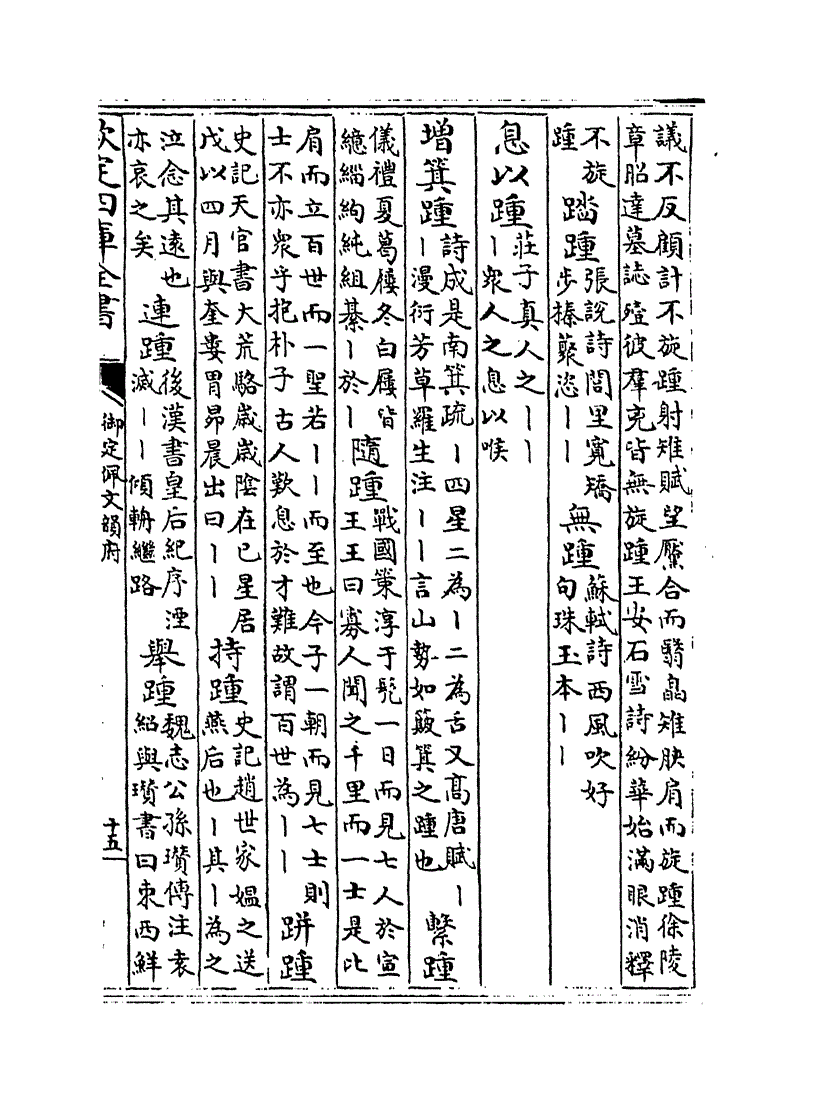 議不反顧計不旋踵射雉賦望黶合而翳晶雉脥肩而旋踵徐陵
章昭達墓誌殪彼羣兇皆無旋踵王安石雪詩紛華始滿眼消釋
不旋
踵
踏踵
張說詩閭里寬矯
步搸蘷恣――
無踵
蘇軾詩西風吹好
句珠玉本――
息以踵
莊子真人之――
―衆人之息以喉
增箕踵
詩成是南箕疏―四星二為―二為舌又高唐賦―
―漫衍芳草羅生注――言山勢如簸箕之踵也
繫踵
儀禮夏葛屨冬白屨皆
繶緇絇純組綦―於―
隨踵
戰國策淳于髠一日而見七人於宣
王王曰寡人聞之千里而一士是比
肩而立百世而一聖若――而至也今子一朝而見七士則
士不亦衆乎抱朴子古人歎息於才難故謂百世為――
跰踵
史記天官書大荒駱歲歲陰在巳星居
戊以四月與奎婁胃昴晨出曰――
持踵
史記趙世家媼之送
燕后也―其―為之
泣念其遠也
亦哀之矣
連踵
後漢書皇后紀序湮
滅――傾輈繼路
舉踵
魏志公孫瓚傳注袁
紹與瓚書曰東西鮮
欽定四庫全書
御定佩文韻府
十五